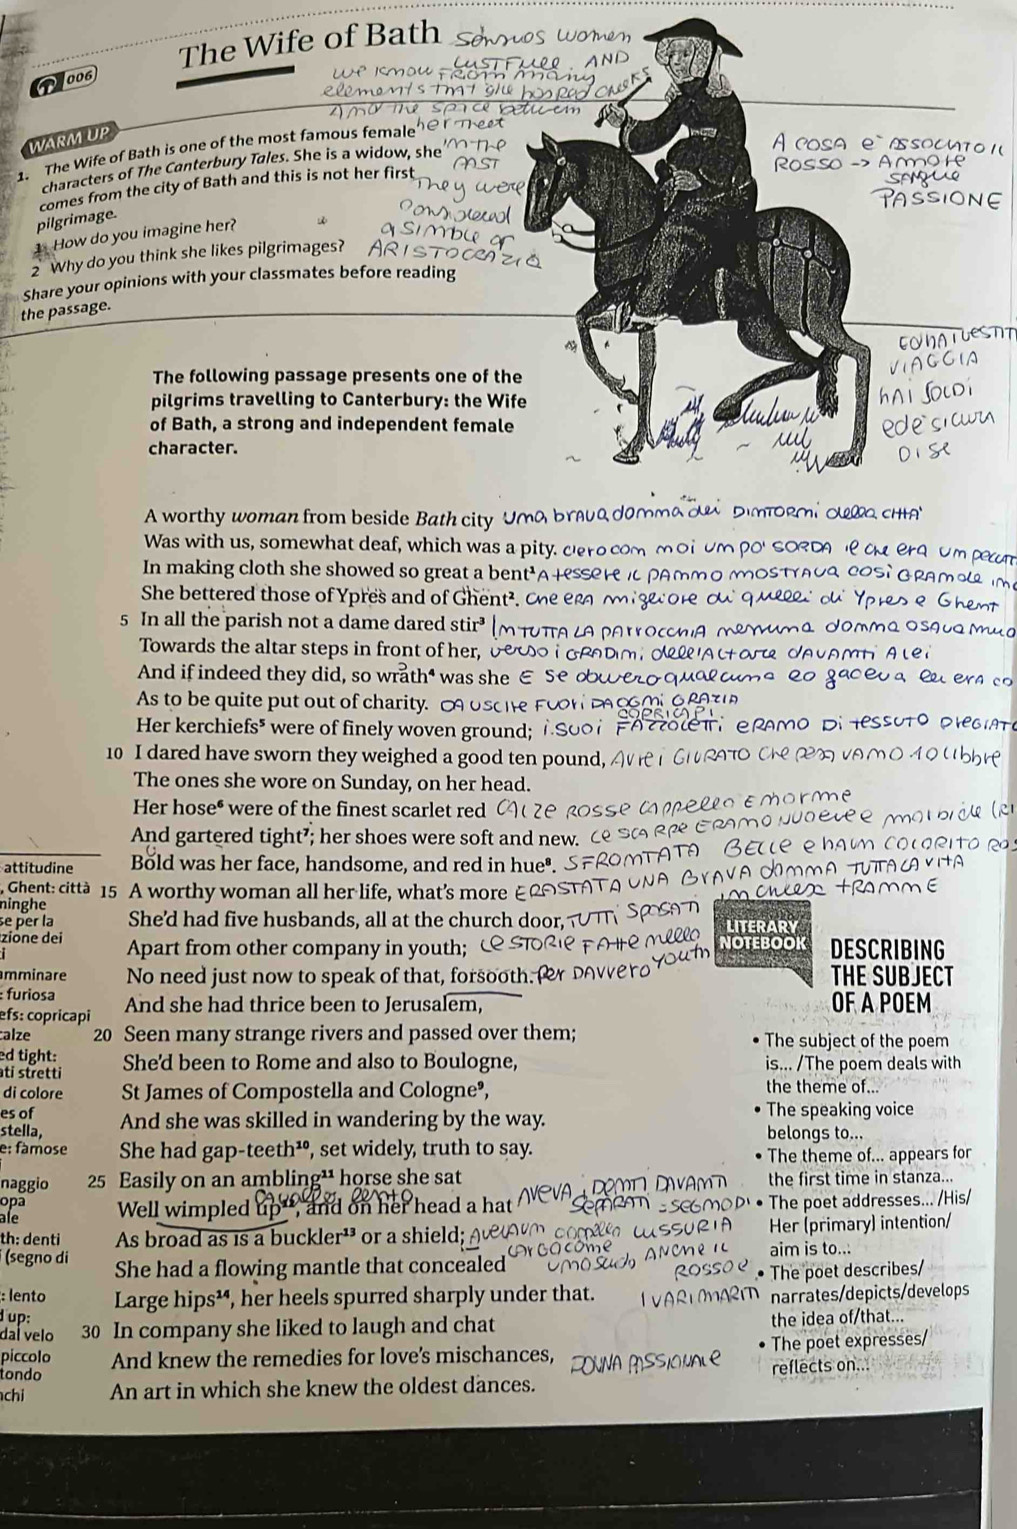 The Wife of Bath
women
LUSTFULL AND
we know FROM many
elements that she has red cheeks
And the space between
her theet
006
WARM UP
1. The Wife of Bath is one of the most famous female
characters of The Canterbury Tales. She is a widow, she
comes from the city of Bath and this is not her first
pilgrimage.
1 How do you imagine her?
2 Why do you think she likes pilgrimages?
Share your opinions with your classmates before reading
the passage.
IN THE
PAST
They were
considered
a simble of
ARISTOCRAZIA
A COSA è ASSOCIATO IL
ROSSO -> AMORE
SANGUE
PASSIONE
VIAGGIA
hAI SOLDI
ed è sicura
DI SE
The following passage presents one of the
pilgrims travelling to Canterbury: the Wife
of Bath, a strong and independent female
character.
A worthy woman from beside Bath city una brava donna dei DINTORNI della CITTA'
Was with us, somewhat deaf, which was a pity. c'ero con noi un po' SORDA il che era un
In making cloth she showed so great a bent¹ A tessere IL PANNO MOSTRAVA COSÌ GRANDE
She bettered those of Ypres and of Ghent². che ERA migliore di quelli di Ypres e Ghent
5 In all the parish not a dame dared stir³ IN TUTTA LA PARROCCHIA nessuna donna OSAVA
Towards the altar steps in front of her, verso i GRADINI dell'Altare dAVANTI A lei
And if indeed they did, so wrath⁴ was she E se davvero qualcuna lo faceva lei era co
As to be quite put out of charity. DA USCIRE FUORI DA OGNI GRAZIA
COPRICAPI
Her kerchiefs⁵ were of finely woven ground; i SUOI FAZZOLETTI ERANO DI TESSUTO PIEGATO
10 I dared have sworn they weighed a good ten pound, Avrei GIURATO che pesavano 10 libbre
The ones she wore on Sunday, on her head.
Her hose⁶ were of the finest scarlet red CALZE ROSSE CAPPELLO ENORME
And gartered tight⁷; her shoes were soft and new. LE SCARPE ERANO NUOVE E MORBIDE
Bold was her face, handsome, and red in hue⁸. SFRONTATA BELLE e hA UN COLORITO
15 A worthy woman all her life, what's more ERA STATA UNA BRAVA donna TUTTA LA VITA
She'd had five husbands, all at the church door, TUTTI SPOSATI in chiesa TRANNE
Apart from other company in youth; le STORIE FATTE nello
No need just now to speak of that, forsooth. PER DAVVERO youth
And she had thrice been to Jerusalem,
20 Seen many strange rivers and passed over them;
She'd been to Rome and also to Boulogne,
St James of Compostella and Cologne⁹,
And she was skilled in wandering by the way.
She had gap-teeth¹⁰, set widely, truth to say.
25 Easily on an ambling¹¹ horse she sat
cavallo lento
Well wimpled up¹², and on her head a hat
As broad as is a buckler¹³ or a shield;
She had a flowing mantle that concealed
Large hips¹⁴, her heels spurred sharply under that.
30 In company she liked to laugh and chat
And knew the remedies for love's mischances,
An art in which she knew the oldest dances.
AVEVA i DENTI DAVANTI
SEPARATI = SEGNO DI
LUSSURIA
LARGO COME
uno scudo
ANCHE IL
ROSSO E
I VARI MARITI
DONNA PASSIONALE
attitudine
, Ghent: città
ninghe
se per la
zione dei
i
amminare
: furiosa
efs: copricapi
calze
ed tight:
ati stretti
di colore
es of
stella,
e: famose
naggio
opa
ale
th: denti
i (segno di
: lento
d up:
dal velo
piccolo
tondo
chi
LITERARY
NOTEBOOK
DESCRIBING
THE SUBJECT
OF A POEM
• The subject of the poem
is... /The poem deals with
the theme of...
• The speaking voice
belongs to...
• The theme of... appears for
the first time in stanza...
• The poet addresses... /His/
Her (primary) intention/
aim is to...
• The poet describes/
narrates/depicts/develops
the idea of/that...
• The poet expresses/
reflects on...